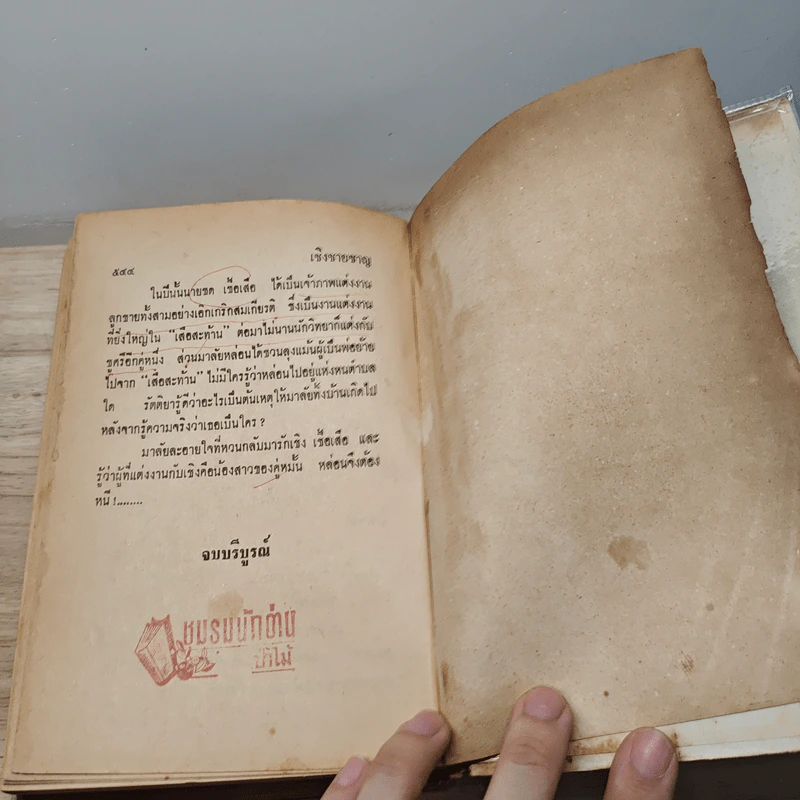 ๕๔๔
เชิงชายชาญ
ในปีนั้นนายชด เชื้อเสือ ได้เป็นเจ้าภาพแต่งงาน
ลูกชายทั้งสามอย่างเอิกเกริกสมเกียรติ ซึ่งเป็นงานแต่งงาน
ที่ยิ่งใหญ่ใน “เสือสะท้าน” ต่อมาไม่นานนักวิทยาก็แต่งกับ
ชูศรีอีกคู่หนึ่ง ส่วนมาลัยหล่อนได้ชวนลุงแม้นผู้เป็นพ่อย้าย
ไปจาก “เสือสะท้าน” ไม่มีใครรู้ว่าหล่อนไปอยู่แห่งหนตำบล
ใด รัตติยารู้ดีว่าอะไรเป็นต้นเหตุให้มาลัยทิ้งบ้านเกิดไป
หลังจากรู้ความจริงว่าเธอเป็นใคร ?
มาลัยละอายใจที่หวนกลับมารักเชิง เชื้อเสือ และ
รู้ว่าผู้ที่แต่งงานกับเชิงคือน้องสาวของคู่หมั้น หล่อนจึงต้อง
หนี !........
จบบริบูรณ์
ชมรมนักอ่าน